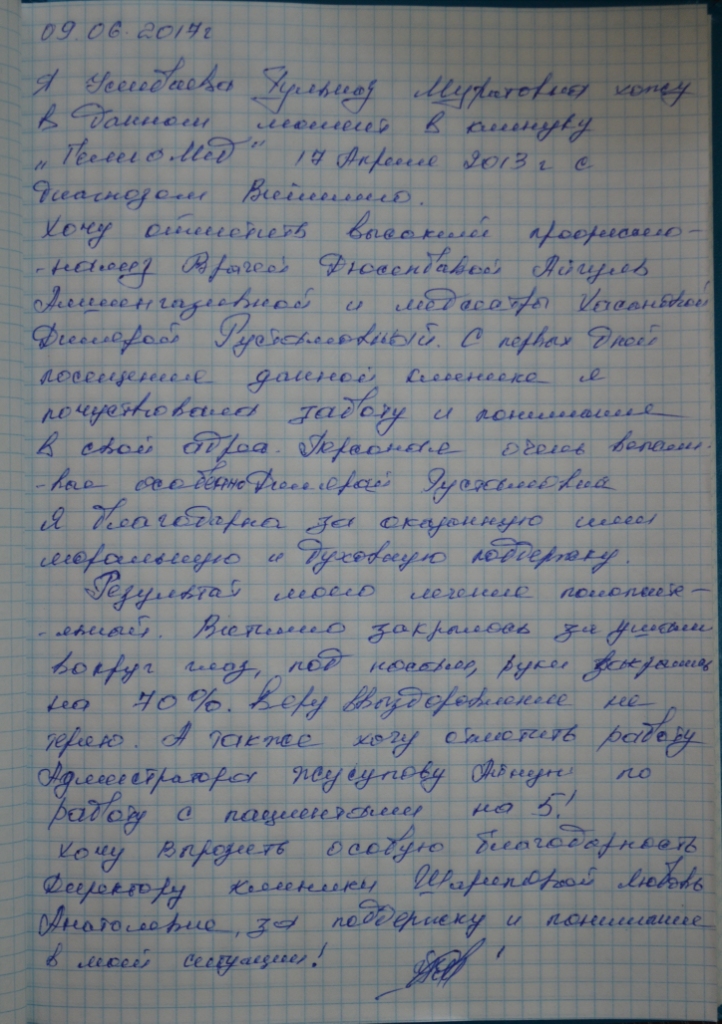 09.06.2017г
Я Усибаева Гульнад Муратовна хожу
в данном момент в клинуку
„Гелио Мед" 17 Апреле 2013 г с
диагнозом Витилиго.
Хочу отметить высокий профессио-
-нализ Врачей Дюсенбавой Айгуль
и медсестры
Дилярой Рустамовный. С первых дней
посещение данной клинике я
почуствовала заботу и понимание
в свой адрес. Персонал очень вежли-
-вые особенно Дилярай Рустамовна
Я благодарна за оказанную ими
моральную и духовную поддержку.
Результат моего лечение положите-
-льный. Витилиго закрылось за ушами
вокруг глаз, под носом, руки закрылись
на 70%. Веру ввыздоровление не
теряю. А также хочу отметить работу
Администратора Жусупову Айнун по
работу с пациентами на 5!
Хочу выразить особую благодарность
Директору клиники Шариповой Любовь
Анатолевне, за поддержку и понимание
в моей ситуации!